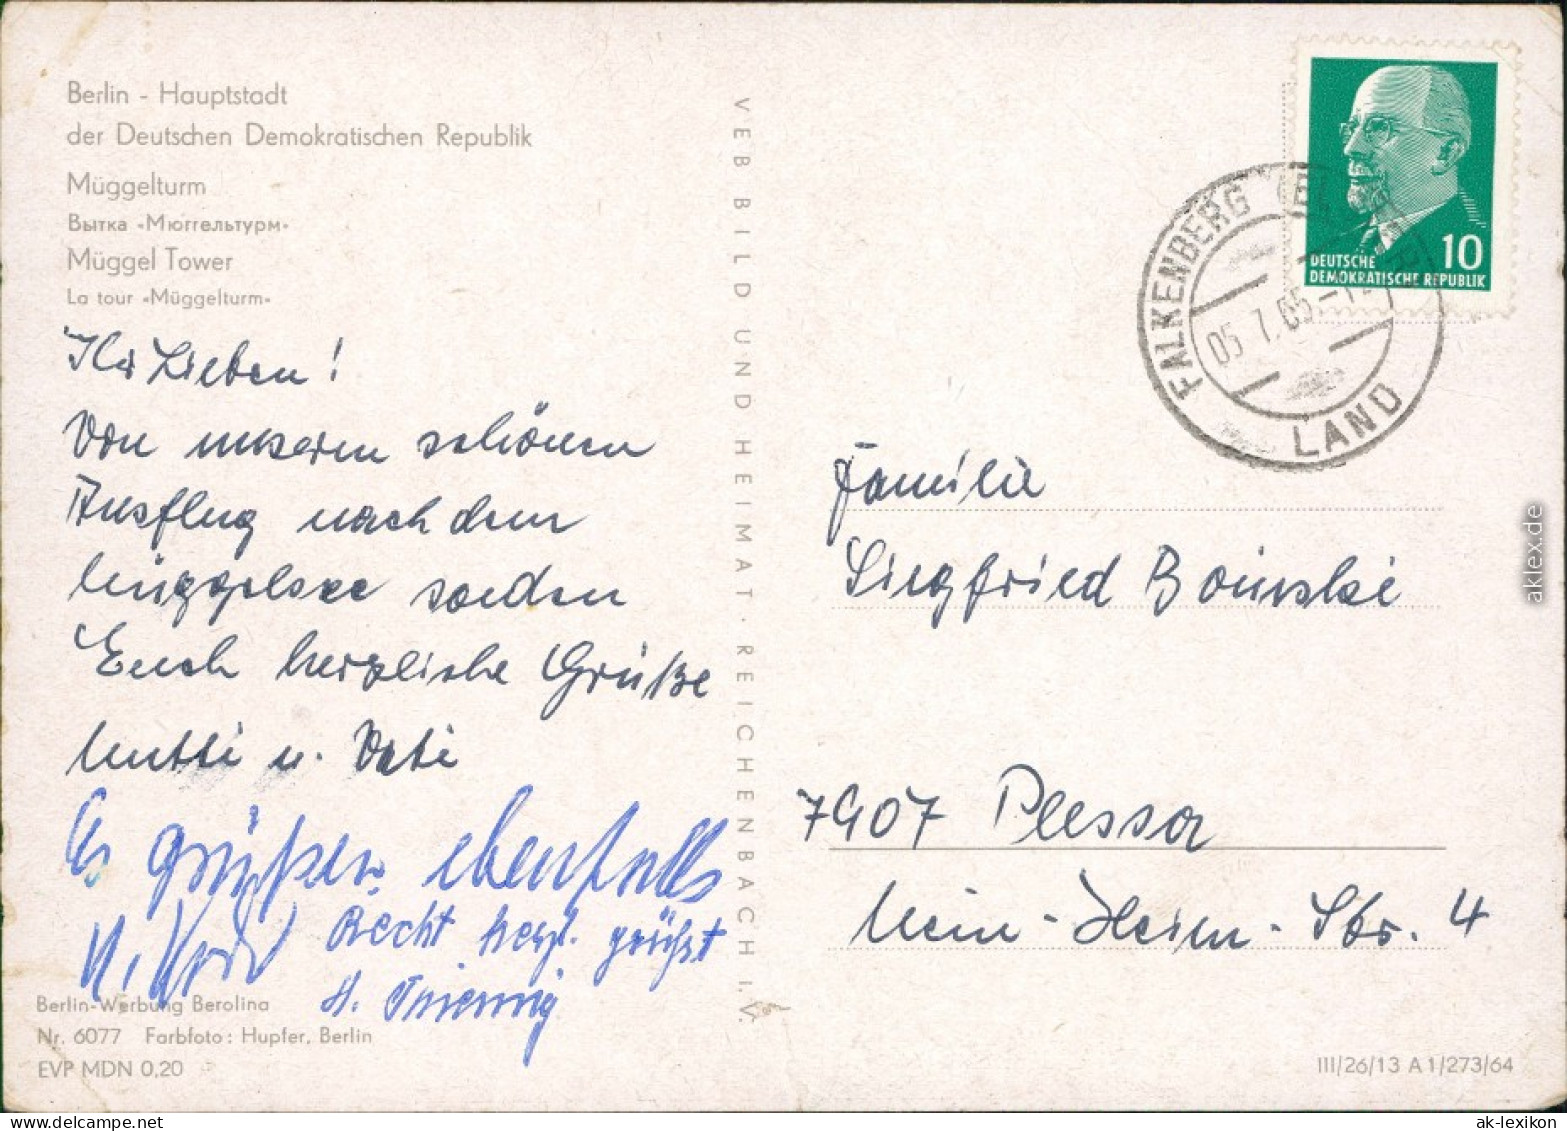 Berlin - Hauptstadt
der Deutschen Demokratischen Republik
Müggelturm
Вытка «Мюггельтурм»
Müggel Tower
La tour «Müggelturm»
Ihr Lieben!
Von unserem schönen
Ausflug nach dem
Müggelsee senden
Euch herzliche Grüße
Mutti u. Vati
Es grüßen ebenfalls
Recht herzl. grüßt
H.
Berlin-Werbung Berolina
Nr. 6077 Farbfoto: Hupfer, Berlin
EVP MDN 0,20
VEB BILD UND HEIMAT · REICHENBACH I. V.
10
DEUTSCHE
DEMOKRATISCHE REPUBLIK
FALKENBERG
05.7.65
LAND
Familie
Siegfried Boinski
7907 Plessa
Mein-Heim-Str. 4
III/26/13 A 1/273/64
aklex.de
ak-lexikon